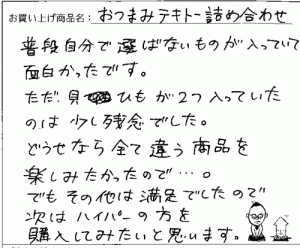 お買い上げ商品名：おつまみテキトー詰め合わせ
普段自分で選ばないものが入っていて
面白かったです。
ただ、貝ひもが2つ入っていた
のは少し残念でした。
どうせなら全て違う商品を
楽しみたかったので…。
でもその他は満足でしたので
次はハイパーの方を
購入してみたいと思います。